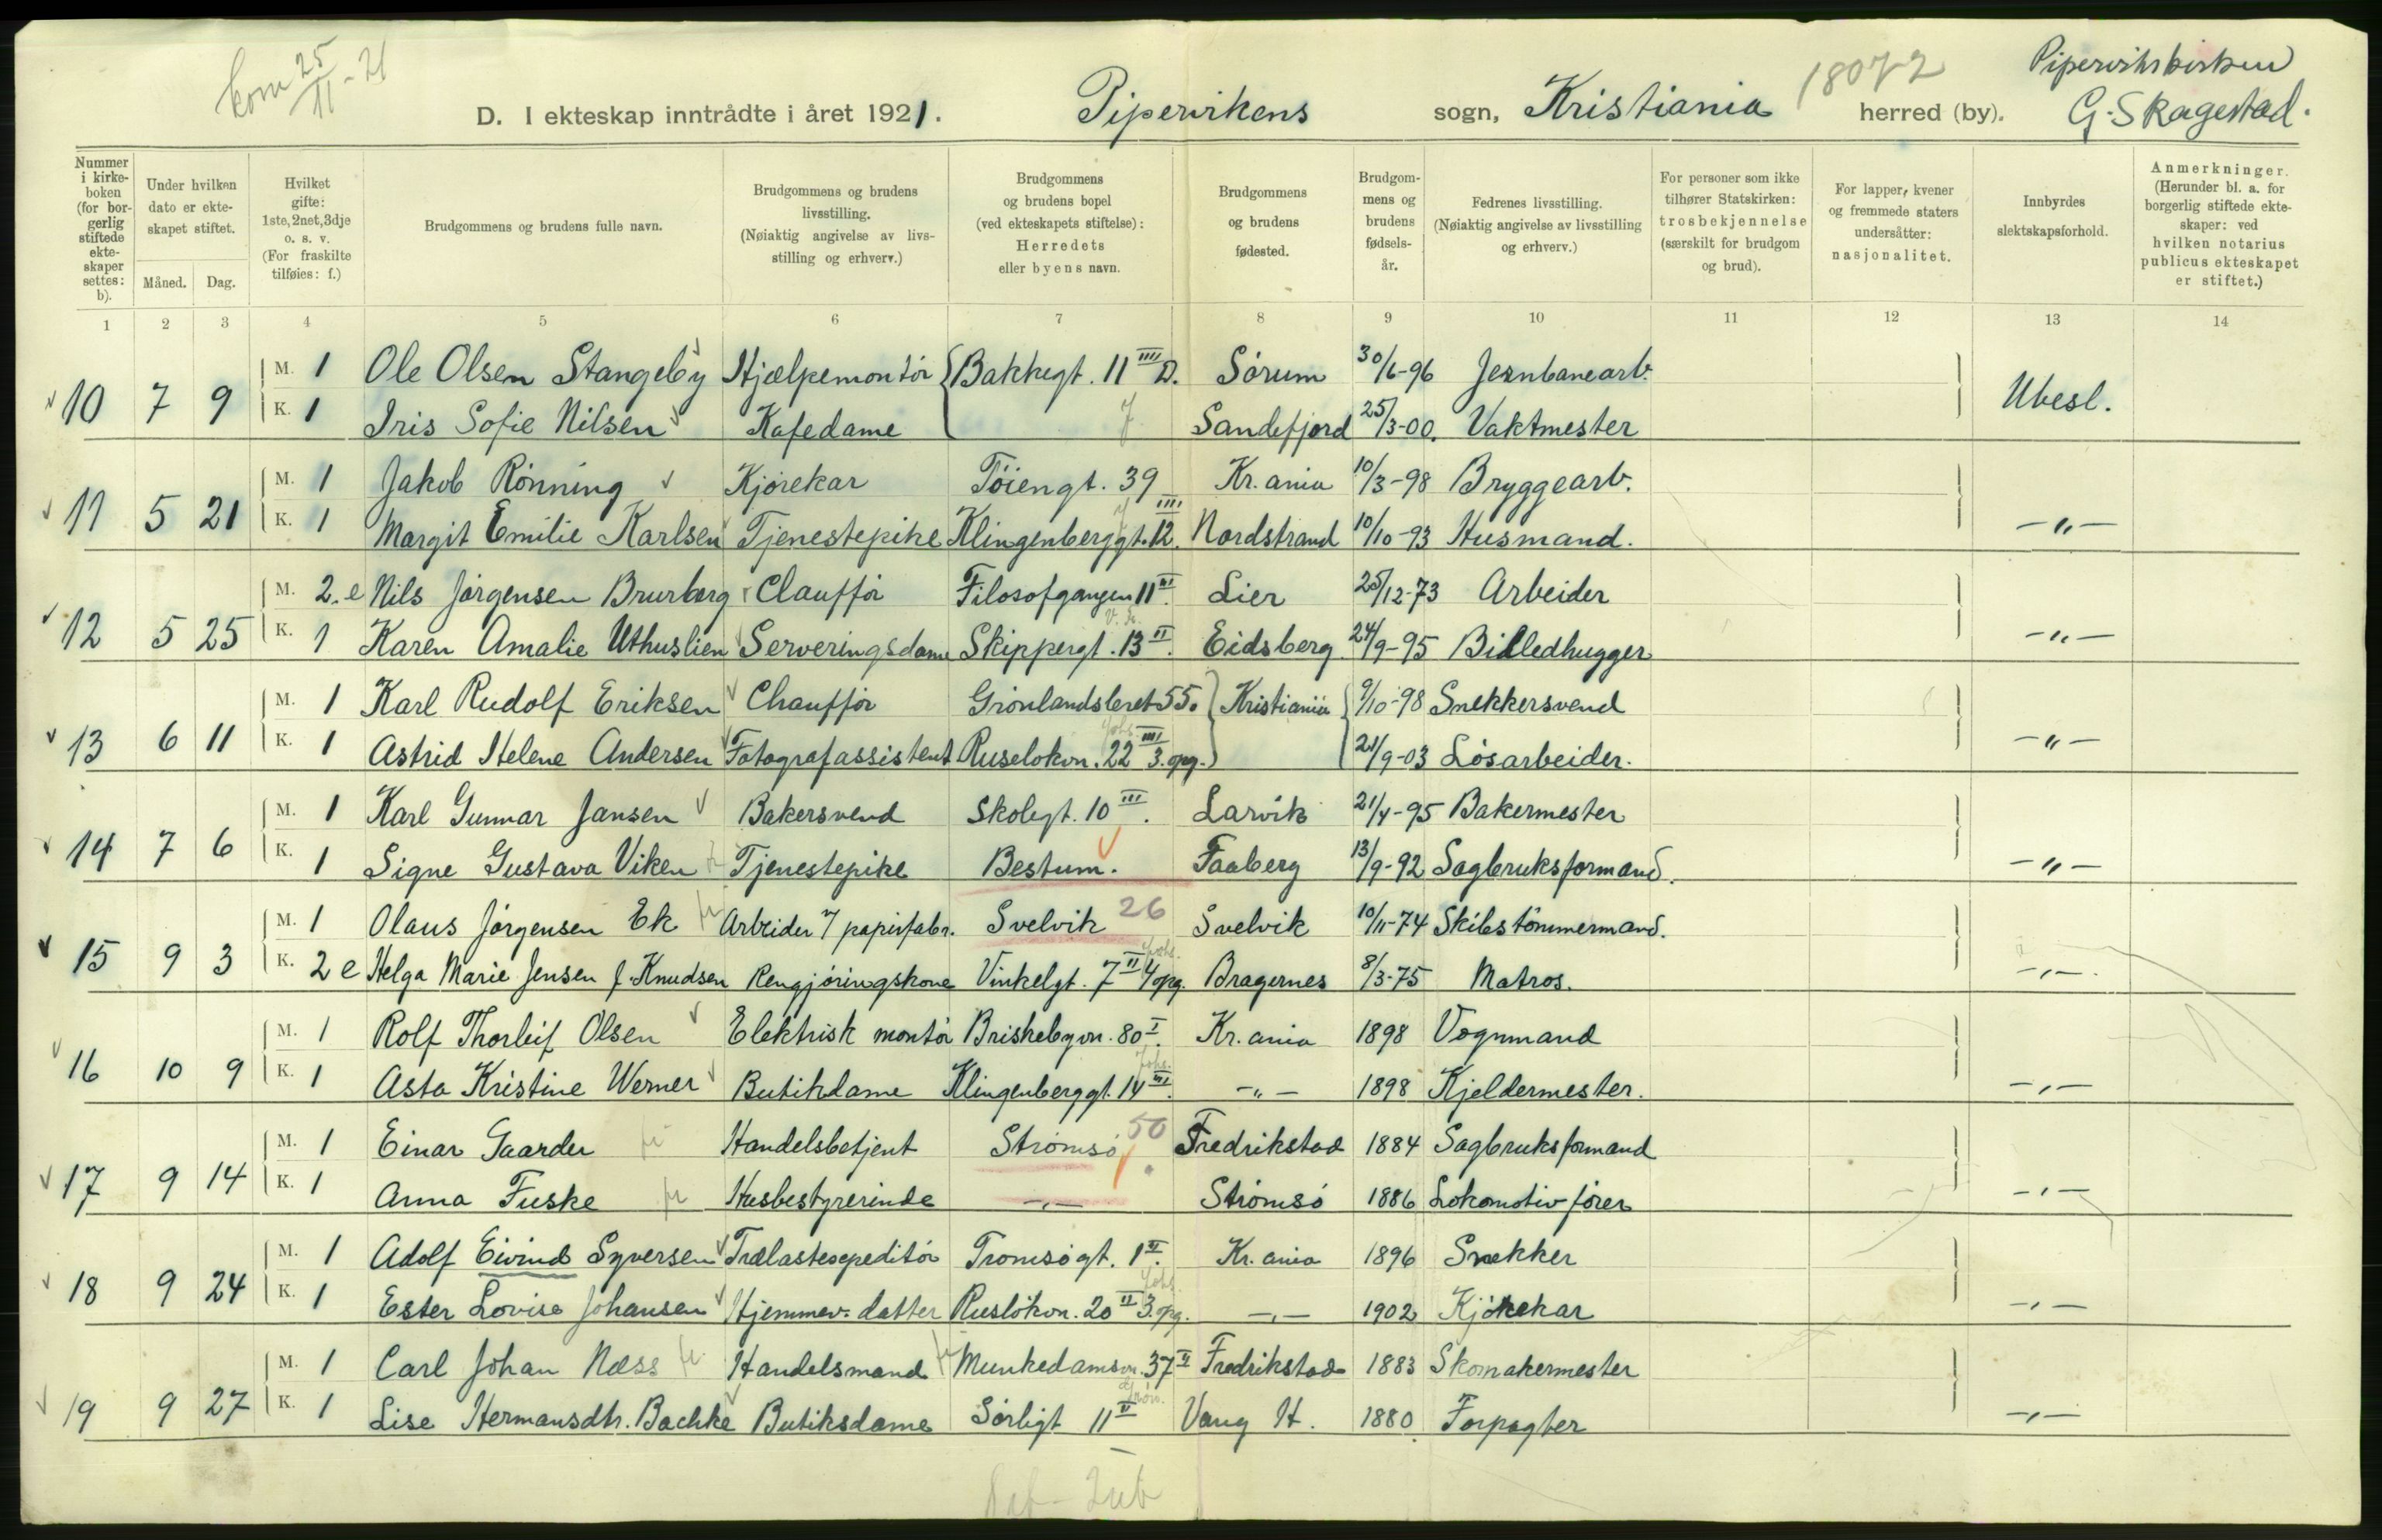 kom 25/11-21
D. I ekteskap inntrådte i året 1921. Pipervikens sogn, Kristiania herred (by).
18072
Pipervikskirken
G. Skagestad.
Nummer i kirkeboken (for borgerlig stiftede ekteskaper settes: b).
Under hvilken dato er ekteskapet stiftet.
Måned. Dag.
Hvilket gifte: 1ste, 2net, 3dje o. s. v. (For fraskilte tilføies: f.)
Brudgommens og brudens fulle navn.
Brudgommens og brudens livsstilling. (Nøiaktig angivelse av livsstilling og erhverv.)
Brudgommens og brudens bopel (ved ekteskapets stiftelse): Herredets eller byens navn.
Brudgommens og brudens fødested.
Brudgommens og brudens fødselsår.
Fedrenes livsstilling. (Nøiaktig angivelse av livsstilling og erhverv.)
For personer som ikke tilhører Statskirken: trosbekjennelse (særskilt for brudgom og brud).
For lapper, kvener og fremmede staters undersåtter: nasjonalitet.
Innbyrdes slektskapsforhold.
Anmerkninger. (Herunder bl. a. for borgerlig stiftede ekteskaper: ved hvilken notarius publicus ekteskapet er stiftet.)
1 2 3 4 5 6 7 8 9 10 11 12 13 14
10 7 9 M. 1 Ole Olsen Stangeby Hjælpemontør Bakkegt. 11 IIII D. Sørum 30/6-96 Jernbanearb. Ubesl.
K. 1 Iris Sofie Nilsen Kafedame Sandefjord 25/3-00. Vaktmester
11 5 21 M. 1 Jakob Rønning Kjørekar Tøiengt. 39 Kr.ania 10/3-98 Bryggearb.
K. 1 Margit Emilie Karlsen Tjenestepike Klingenberggt. 12 IIII. Nordstrand 10/10-93 Husmand. -"-
12 5 25 M. 2.e Nils Jørgensen Brurborg Chauffør Filosofgangen 11 III. Lier 25/12-73 Arbeider
K. 1 Karen Amalie Uthuslien Serveringsdame Skippergt. 13 II. Eidsberg 24/9-95 Billedhugger -"-
13 6 11 M. 1 Karl Rudolf Eriksen Chauffør Grønlandsleret 55. Kristiania 9/10-98 Snekkersvend
K. 1 Astrid Helene Andersen Fotografassistent Ruseløkvn. 22 IIII 3. opg. 21/9-03 Løsarbeider. -"-
14 7 6 M. 1 Karl Gunnar Jansen Bakersvend Skolegt. 10 III. Larvik 21/4-95 Bakermester
K. 1 Signe Gustava Viken Tjenestepike Bestum. Faaberg 13/9-92 Sagbruksformand. -"-
15 9 3 M. 1 Olaus Jørgensen Ek Arbeider v/ papirfabr. Svelvik 26 Svelvik 10/11-74 Skibstømmermand.
K. 2 e Helga Marie Jensen f. Knudsen Rengjøringskone Vinkelgt. 7 II 4 opg. Bragernes 8/3-75 Matros. -"-
16 10 9 M. 1 Rolf Thorleif Olsen Elektrisk montør Briskebyvn. 80 I. Kr.ania 1898 Vognmand
K. 1 Asta Kristine Werner Butikdame Klingenberggt. 14 III. -"- 1898 Kjeldermester. -"-
17 9 14 M. 1 Einar Gaarder Handelsbetjent Strømsø 50 Fredrikstad 1884 Sagbruksformand
K. 1 Anna Fuske Husbestyrerinde -"- Strømsø 1886 Lokomotivfører -"-
18 9 24 M. 1 Adolf Eivind Syversen Trælastexpeditør Tromsøgt. 1 II. Kr.ania 1896 Snekker
K. 1 Ester Lovise Johansen Hjemmev. datter Rusløkvn. 20 II 3. opg. -"- 1902 Kjørekar -"-
19 9 27 M. 1 Carl Johan Næss Handelsmand Munkedamsvn. 37 II Fredrikstad 1883 Skomakermester
K. 1 Lise Hermansdtr. Bachke Butiksdame Sørligt 11 II Vang H. 1880 Forpagter -"-